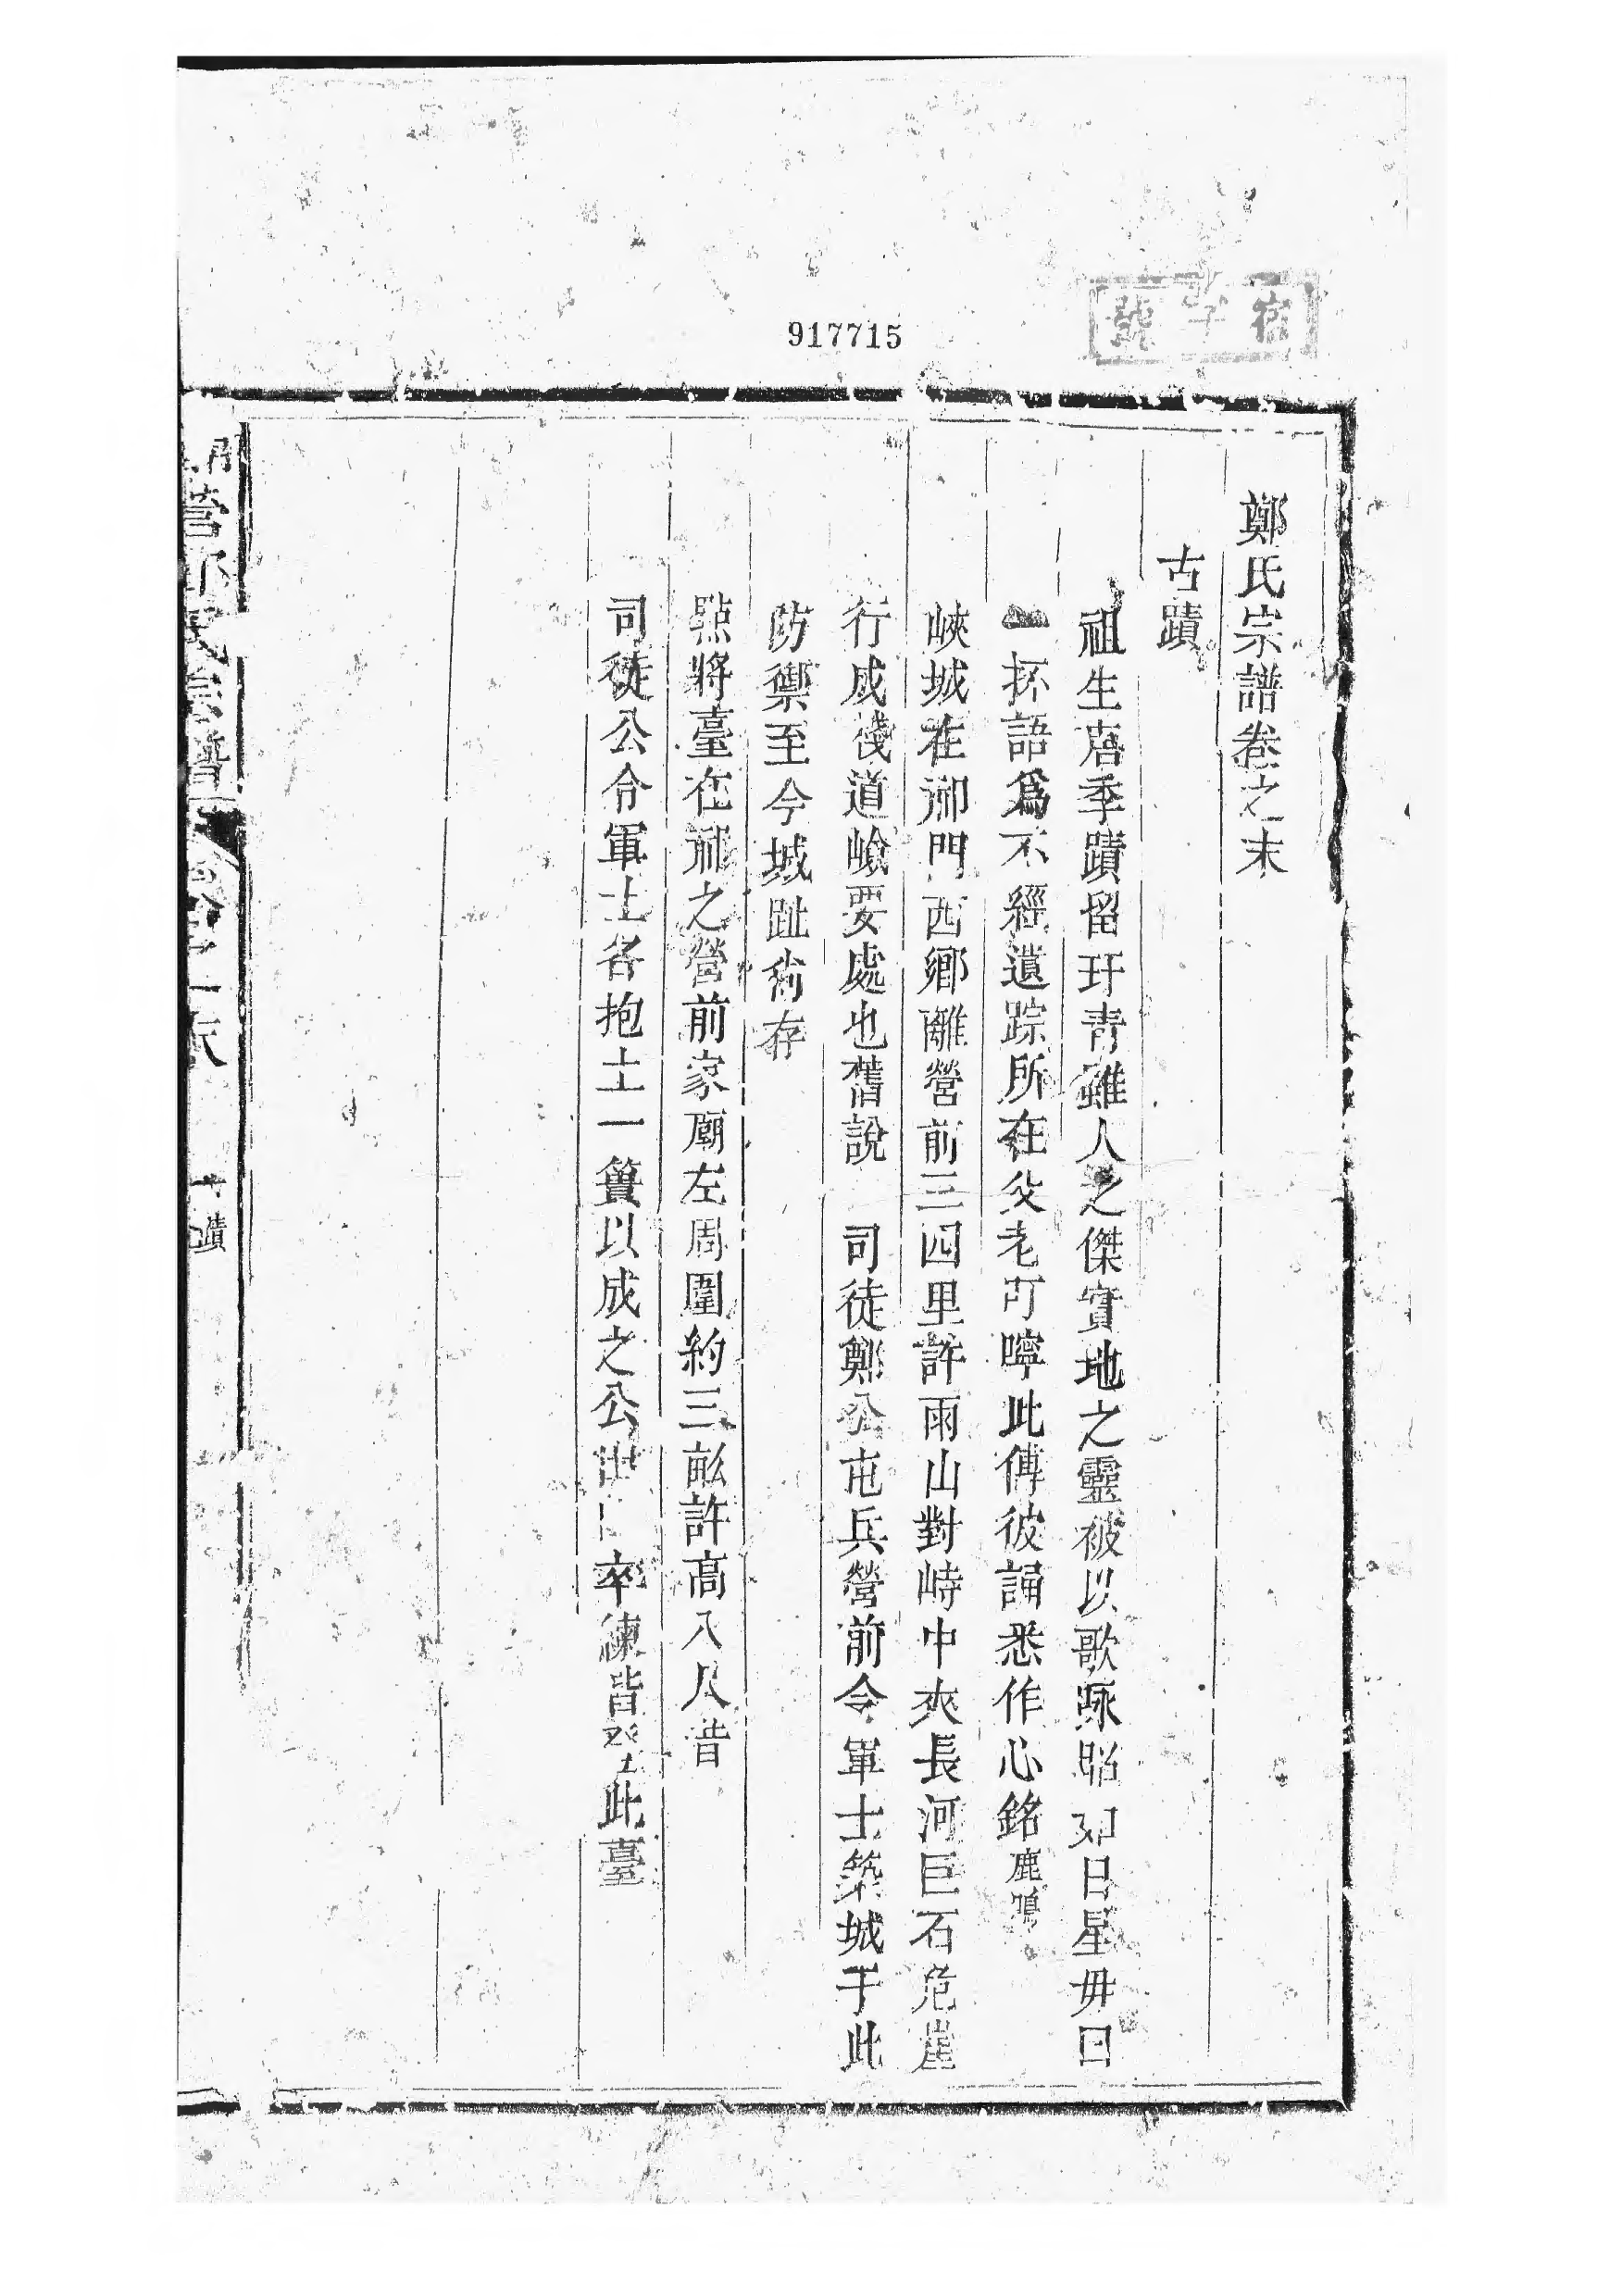 宿字號
917715
鄭氏宗譜卷之末
古蹟
祖生唐季蹟留玗青雖人之傑實地之靈被以歌咏昭如日星毋曰
一抔語爲不經遺踪所在父老叮嚀此傳彼誦悉作心銘鹿鳴
峽城在邶門西鄉離營前三四里許兩山對峙中夾長河巨石危崖
行成棧道嶮要處也舊說 司徒鄭公屯兵營前令軍士築城于此
防禦至今城趾尚存
點將臺在邶之營前家廟左周圍約三畝許高八尺昔
司徒公令軍士各抱土一簣以成之公出 卒練皆登此臺
營 氏宗譜 卷之末 古蹟